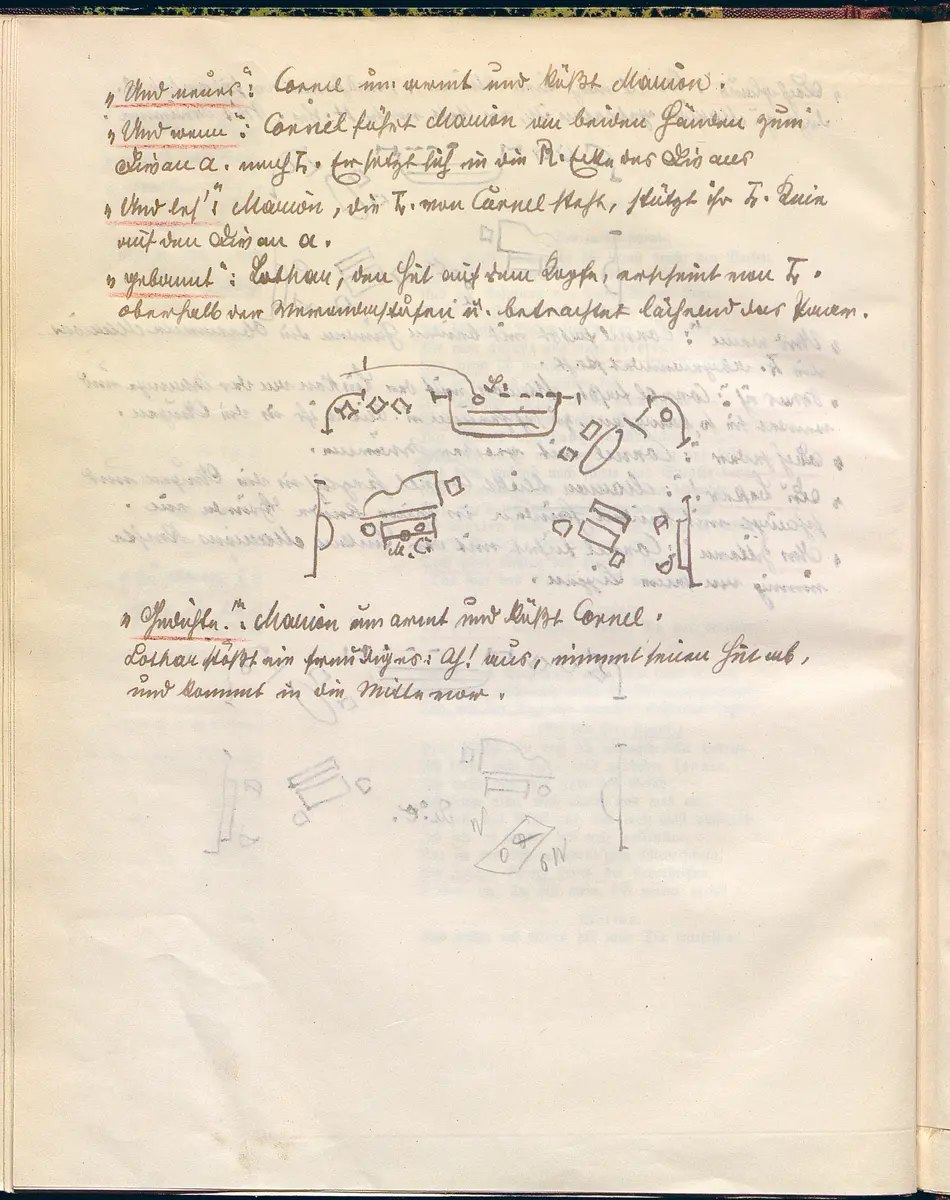 „Und neues": Cornel umarmt und küßt Marion.
„Und wenn": Cornel führt Marion an beiden Händen zum
Divan a. nach L. Er setzt sich in die R. Ecke des Divans
„Und les'": Marion, die L. von Cornel steht, stützt ihr L. Knie
auf den Divan a.
„gebannt": Lothar, den Hut auf dem Kopfe, erscheint von L.
oberhalb der Verandastufen u. betrachtet lächend das Paar.
L.
M. C.
„Gedichte.": Marion umarmt und küßt Cornel.
Lothar stößt ein freudiges: Ah! aus, nimmt seinen Hut ab,
und kommt in die Mitte vor.